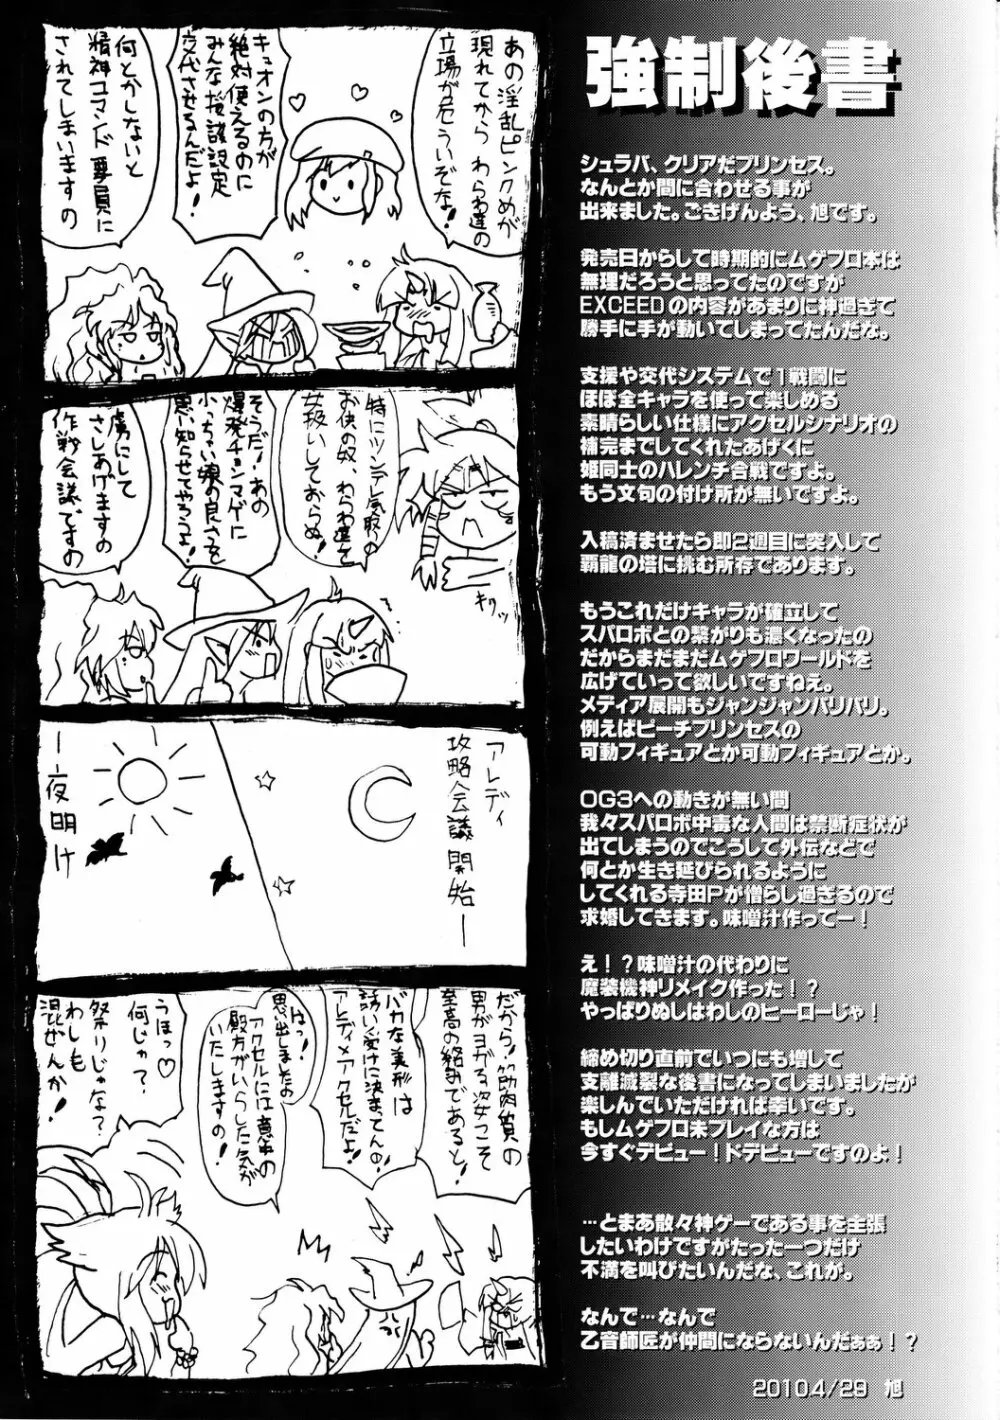 強制後書
シュラバ、クリアだプリンセス。
なんとか間に合わせる事が
出来ました。ごきげんよう、旭です。
発売日からして時期的にムゲフロ本は
無理だろうと思ってたのですが
EXCEEDの内容があまりに神過ぎて
勝手に手が動いてしまってたんだな。
支援や交代システムで1戦闘に
ほぼ全キャラを使って楽しめる
素晴らしい仕様にアクセルシナリオの
補完までしてくれたあげくに
姫同士のハレンチ合戦ですよ。
もう文句の付け所が無いですよ。
入稿済ませたら即2週目に突入して
覇龍の塔に挑む所存であります。
もうこれだけキャラが確立して
スパロボとの繋がりも濃くなったの
だからまだまだムゲフロワールドを
広げていって欲しいですねえ。
メディア展開もジャンジャンバリバリ。
例えばピーチプリンセスの
可動フィギュアとか可動フィギュアとか。
OG3への動きが無い間
我々スパロボ中毒な人間は禁断症状が
出てしまうのでこうして外伝などで
何とか生き延びられるように
してくれる寺田Pが憎らし過ぎるので
求婚してきます。味噌汁作ってー！
え！？味噌汁の代わりに
魔装機神リメイク作った！？
やっぱりぬしはわしのヒーローじゃ！
締め切り直前でいつにも増して
支離滅裂な後書になってしまいましたが
楽しんでいただければ幸いです。
もしムゲフロ未プレイな方は
今すぐデビュー！ドデビューですのよ！
…とまあ散々神ゲーである事を主張
したいわけですがたった一つだけ
不満を叫びたいんだな、これが。
なんで…なんで
乙音師匠が仲間にならないんだぁぁ！？
2010.4/29 旭
あの淫乱ピンクめが
現れてから わらわ達の
立場が危ういぞな！
キュオンの方が
絶対使えるのに
みんな桜談設定
交代させるんだよ！
何とかしないと
精神コマンド要員に
されてしまいますの
特にツンデレ気取の
お侠の奴、わらわ達を
女扱いしておらぬ！
キリッ
そうだ！あの
爆発チョンマゲに
小っちゃい娘の良さを
思い知らせてやろうよ！
虜にして
さしあげますの
作戦会議ですの
アレディ
攻略会議開始ー
ー夜明け
だから！筋肉質の
男がヨガる姿こそ
至高の格好であると！
バカな美形は
誘い受けに決まってんゆ！
アレディ×アクセルだよ！
はっ！
思い出しましたの
アクセルには意中の
殿方がいらした気が
いたしますの！
うほっ♡
何じゃ？
祭りじゃな？
わしも
混ぜんか！